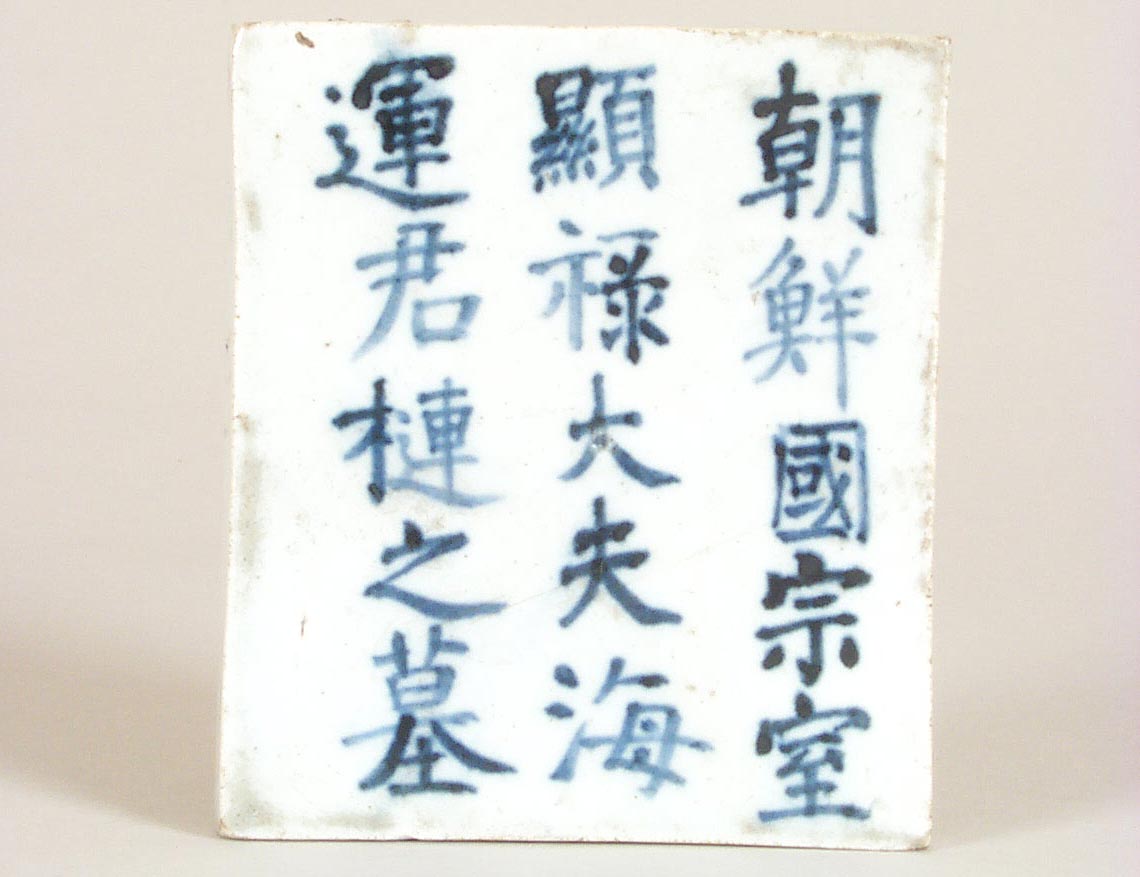 朝鮮國宗室
顯祿大夫海
運君槤之墓